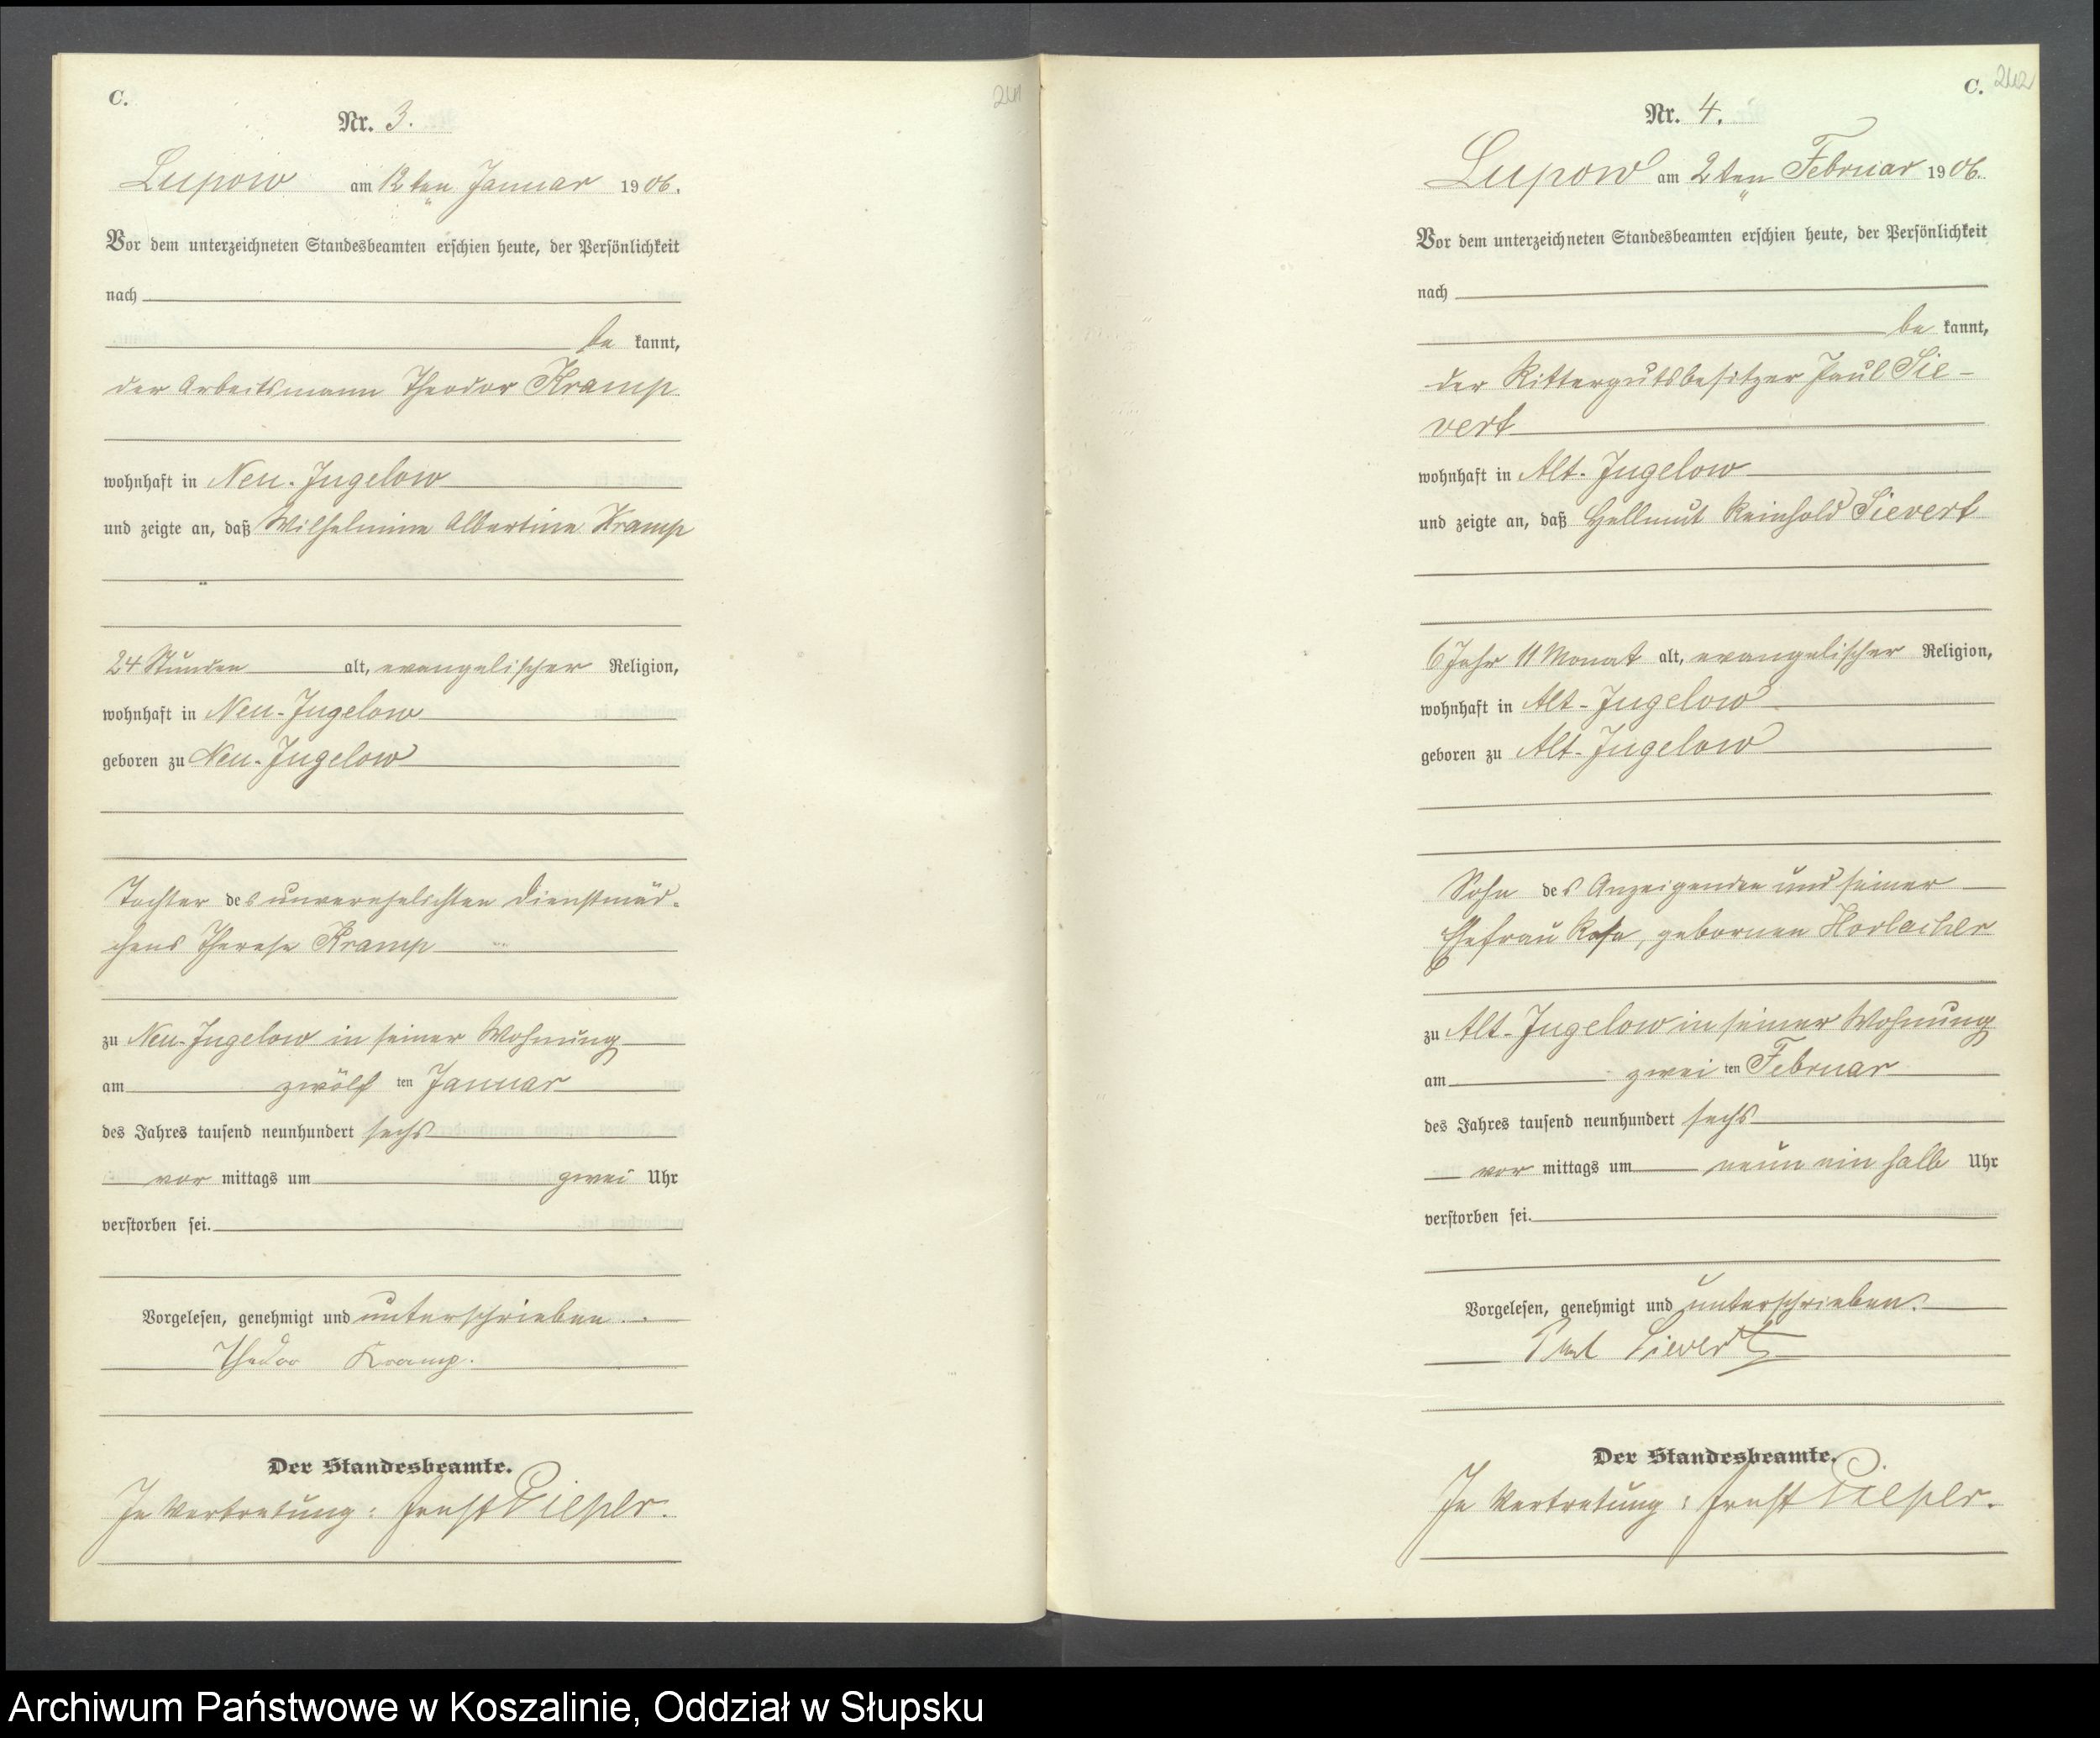 C.
241
Nr. 3.
Lupow am 12ten Januar 1906.
Vor dem unterzeichneten Standesbeamten erschien heute, der Persönlichkeit
nach
be kannt,
der Arbeitsmann Theodor Kramp
wohnhaft in Neu-Jugelow
und zeigte an, daß Wilhelmine Albertine Kramp
24 Stunden alt, evangelischer Religion,
wohnhaft in Neu-Jugelow
geboren zu Neu-Jugelow
Tochter des unverehelichten Dienstmäd-
chens Therese Kramp
zu Neu-Jugelow in seiner Wohnung
am zwölf ten Januar
des Jahres tausend neunhundert sechs
vor mittags um zwei Uhr
verstorben sei.
Vorgelesen, genehmigt und unterschrieben.
Theodor Kramp.
Der Standesbeamte.
In Vertretung: Ernst Pieper.
C. 242
Nr. 4.
Lupow am 2ten Februar 1906.
Vor dem unterzeichneten Standesbeamten erschien heute, der Persönlichkeit
nach
be kannt,
der Rittergutsbesitzer Paul Sie-
vert
wohnhaft in Alt-Jugelow
und zeigte an, daß Hellmut Reinhold Sievert
6 Jahr 11 Monat alt, evangelischer Religion,
wohnhaft in Alt-Jugelow
geboren zu Alt-Jugelow
Sohn des Anzeigenden und seiner
Ehefrau Rosa, gebornen Horlacher
zu Alt-Jugelow in seiner Wohnung
am zwei ten Februar
des Jahres tausend neunhundert sechs
vor mittags um neun ein halb Uhr
verstorben sei.
Vorgelesen, genehmigt und unterschrieben.
Paul Sievert
Der Standesbeamte.
In Vertretung: Ernst Pieper.
Archiwum Państwowe w Koszalinie, Oddział w Słupsku